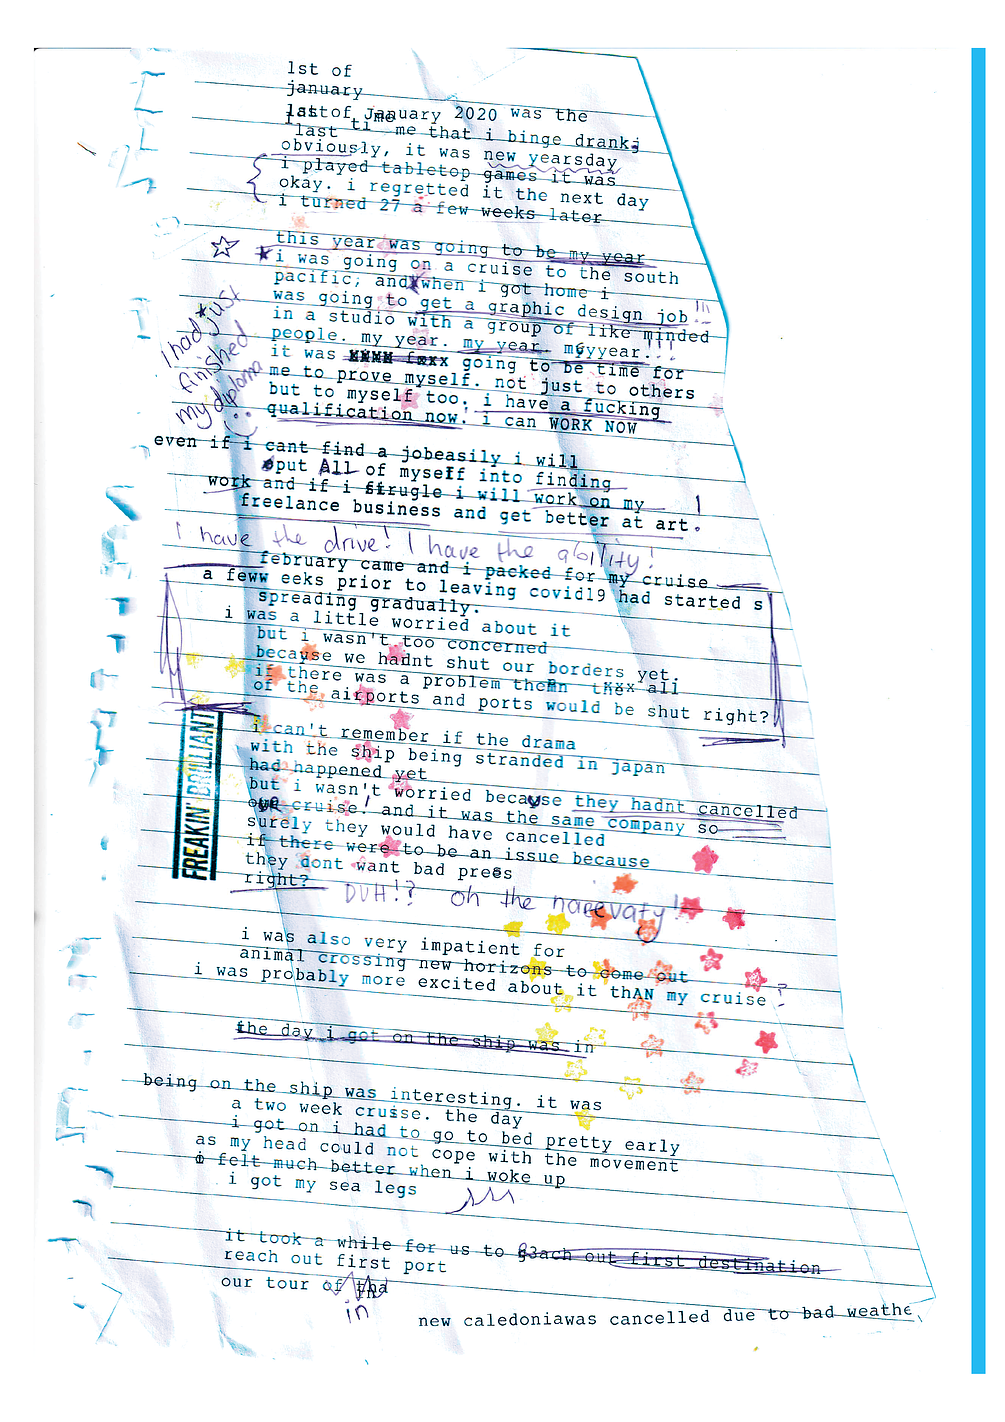 1st of
january
1st of January 2020 was the
last time that i binge drank;
obviously, it was new yearsday
i played tabletop games it was
okay. i regretted it the next day
i turned 27 a few weeks later
this year was going to be my year
i was going on a cruise to the south
pacific; and when i got home i
was going to get a graphic design job !!!
in a studio with a group of like minded
people. my year. my year. myyyear...
it was going to be time for
me to prove myself. not just to others
but to myself too. i have a fucking
qualification now! i can WORK NOW
I had just
finished
my diploma
even if i cant find a jobeasily i will
put All of myself into finding
work and if i strugle i will work on my
freelance business and get better at art.
I have the drive! I have the ability!
february came and i packed for my cruise
a feww eeks prior to leaving covid19 had started s
spreading gradually.
i was a little worried about it
but i wasn't too concerned
because we hadnt shut our borders yet.
if there was a problem then all
of the airports and ports would be shut right?
FREAKIN' BRILLIANT
i can't remember if the drama
with the ship being stranded in japan
had happened yet
but i wasn't worried because they hadnt cancelled
our cruise! and it was the same company so
surely they would have cancelled
if there were to be an issue because
they dont want bad press
right? DUH!? oh the narevaty!
i was also very impatient for
animal crossing new horizons to come out
i was probably more excited about it thAN my cruise !?
the day i got on the ship was in
being on the ship was interesting. it was
a two week cruise. the day
i got on i had to go to bed pretty early
as my head could not cope with the movement
i felt much better when i woke up
i got my sea legs
it took a while for us to g3ach out first destination
reach out first port
our tour of
in
new caledoniawas cancelled due to bad weathe